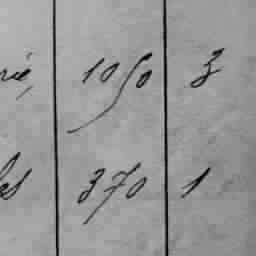 rié, 1050 3
les 370 1